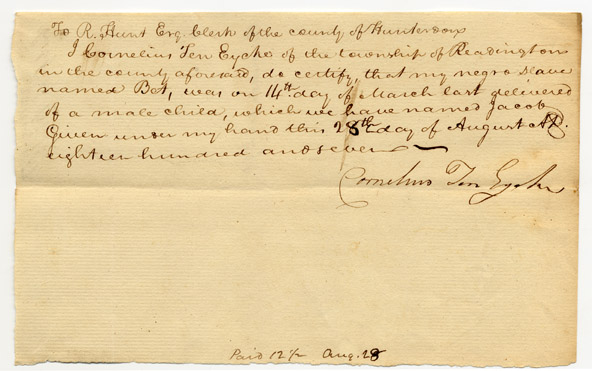 To R. Hunt Esq. Clerk of the county of Hunterdon
I Cornelius Ten Eycke of the township of Readington
in the county aforesaid, do certify, that my negro slave
named Bet, was on 14th day of March last delivered
of a male child, which we have named Jacob
Given under my hand this 28th day of August AD.
eighteen hundred and seven
Cornelius Ten Eycke
Paid 12½ Aug. 28